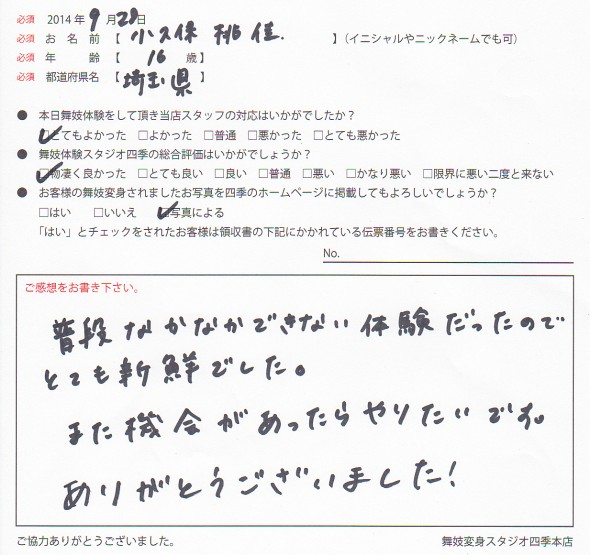 必須 2014年9月28日
必須 お名前【小久保 桃佳.】(イニシャルやニックネームでも可)
必須 年齢【16歳】
必須 都道府県名【埼玉県】
● 本日舞妓体験をして頂き当店スタッフの対応はいかがでしたか？
☑とてもよかった □よかった □普通 □悪かった □とても悪かった
● 舞妓体験スタジオ四季の総合評価はいかがでしょうか？
☑物凄く良かった □とても良い □良い □普通 □悪い □かなり悪い □限界に悪い二度と来ない
● お客様の舞妓変身されましたお写真を四季のホームページに掲載してもよろしいでしょうか？
□はい □いいえ ☑写真による
「はい」とチェックをされたお客様は領収書の下記にかかれている伝票番号をお書きください。
No.
ご感想をお書き下さい。
普段なかなかできない体験だったので
とても新鮮でした。
また機会があったらやりたいです。
ありがとうございました！
ご協力ありがとうございました。 舞妓変身スタジオ四季本店